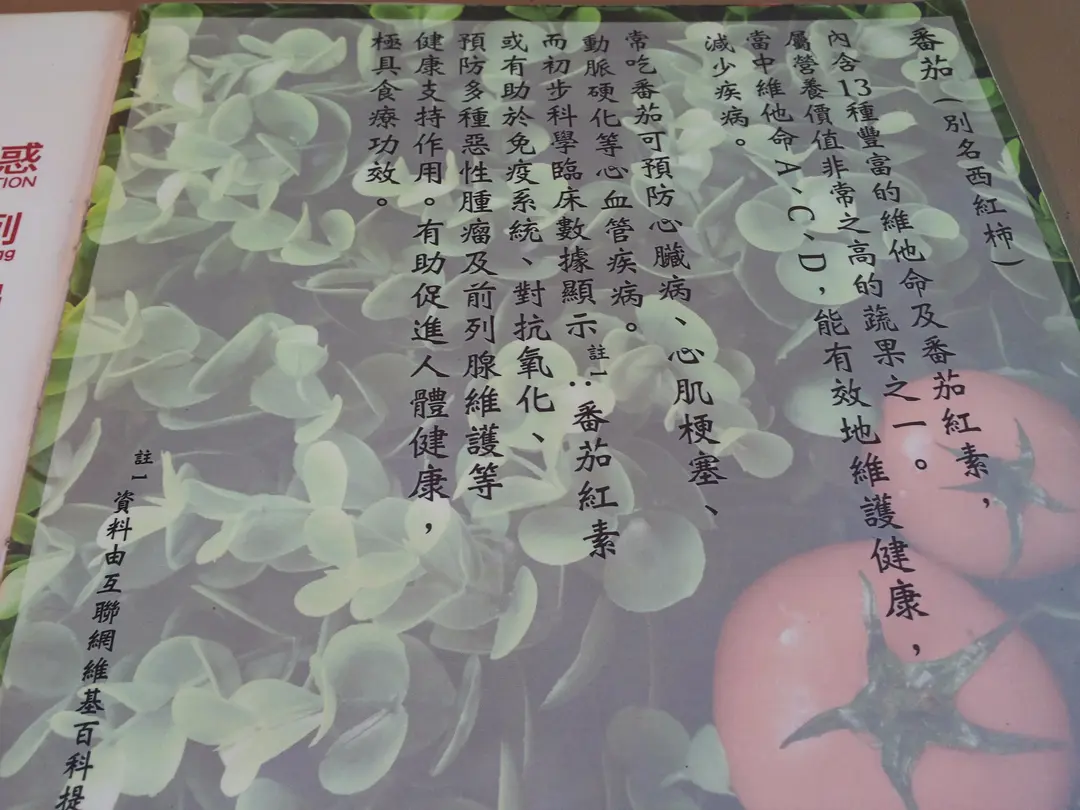 番茄（別名西紅柿）
內含13種豐富的維他命及番茄紅素，
屬營養價值非常之高的蔬果之一。
當中維他命A、C、D，能有效地維護健康，
減少疾病。
常吃番茄可預防心臟病、心肌梗塞、
動脈硬化等心血管疾病。
而初步科學臨床數據顯示註1：番茄紅素
或有助於免疫系統、對抗氧化、
預防多種惡性腫瘤及前列腺維護等
健康支持作用。有助促進人體健康，
極具食療功效。
註1資料由互聯網維基百科提
惑
TION
列